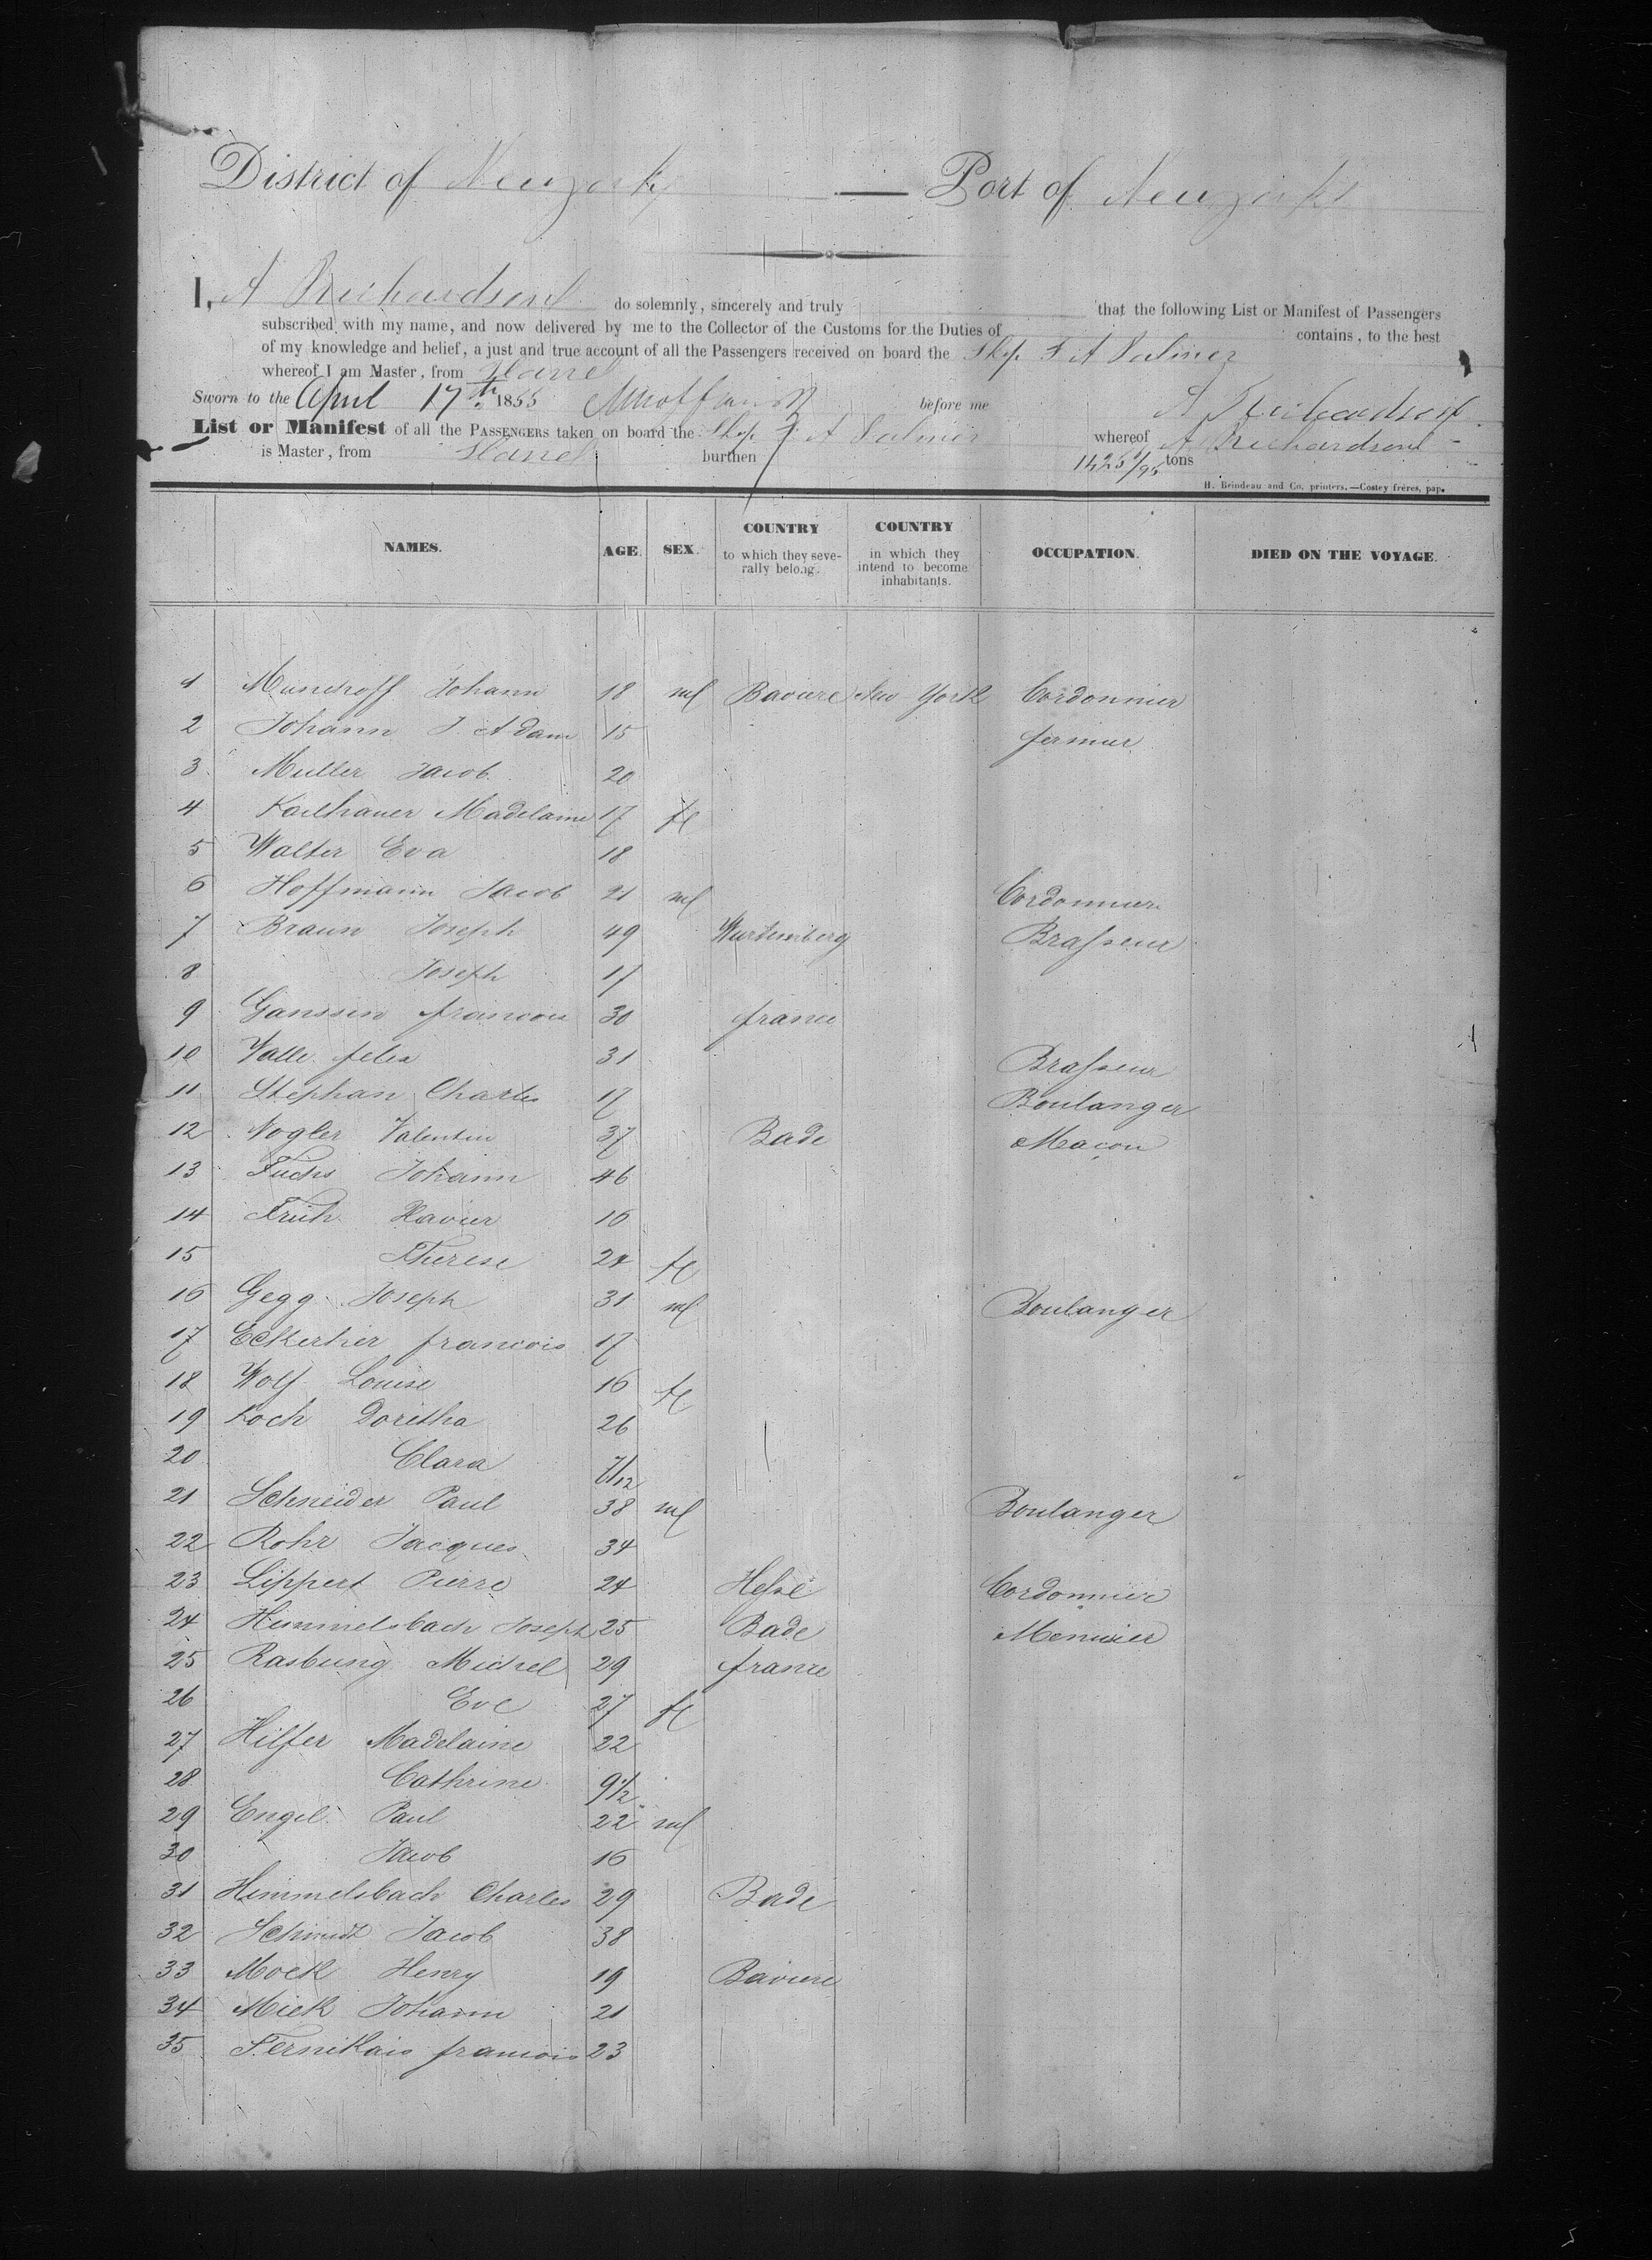 District of Newyork — Port of Newyork
I, A Richardson do solemnly, sincerely and truly that the following List or Manifest of Passengers
subscribed with my name, and now delivered by me to the Collector of the Customs for the Duties of contains, to the best
of my knowledge and belief, a just and true account of all the Passengers received on board the Ship F A Palmer
whereof I am Master, from Havre
Sworn to the April 17th 1855 before me A Richardson
List or Manifest of all the PASSENGERS taken on board the Ship F A Palmer whereof A Richardson
is Master, from Havre burthen 1425 /95 tons
H. Brindeau and Co, printers.—Costey frères, pap.
NAMES. AGE. SEX. COUNTRY to which they seve-rally belong. COUNTRY in which they intend to become inhabitants. OCCUPATION. DIED ON THE VOYAGE.
1 Munchoff Johann 18 ml Baviere New York Cordonnier
2 Johann J. Adam 15 fermier
3 Muller Jacob 20
4 Kailhauer Madelaine 17 fe
5 Walter Eva 18
6 Hoffmann Jacob 21 ml Cordonnier
7 Braun Joseph 49 Wurtemberg Brasseur
8 Joseph 17
9 Ganssin francois 30 france
10 Valle felix 31 Brasseur
11 Stephan Charles 17 Boulanger
12 Nogler Valentin 37 Bade Maçon
13 Fuchs Johann 46
14 Früh Xavier 16
15 Therese 24 fe
16 Gegg Joseph 31 ml Boulanger
17 Eckerher francois 17
18 Wolf Louise 16 fe
19 Koch Doretha 26
20 Clara 7/12
21 Schneider Paul 38 ml Boulanger
22 Rohr Jacques 34
23 Lippert Pierre 24 Hesse Cordonnier
24 Himmelsbach Joseph 25 Bade Menuier
25 Rasbung Michel 29 france
26 Eve 27 fe
27 Hilfer Madelaine 22
28 Cathrine 9 1/2
29 Engel Paul 22 ml
30 Jacob 16
31 Himmelsbach Charles 29 Bade
32 Schmidt Jacob 38
33 Mock Henry 19 Baviere
34 Mick Johann 21
35 Fernikais francois 23